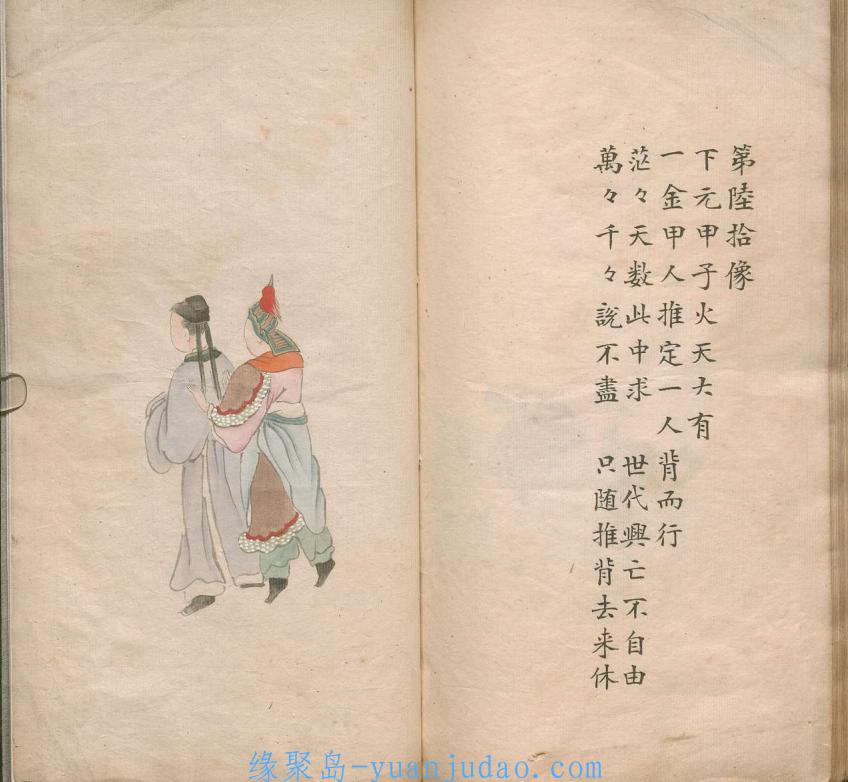 第陸拾像
下元甲子火天大有
一金甲人推定一人背而行
茫々天数此中求 世代興亡不自由
萬々千々説不盡 只随推背去来休
缘聚岛-yuanjudao.com